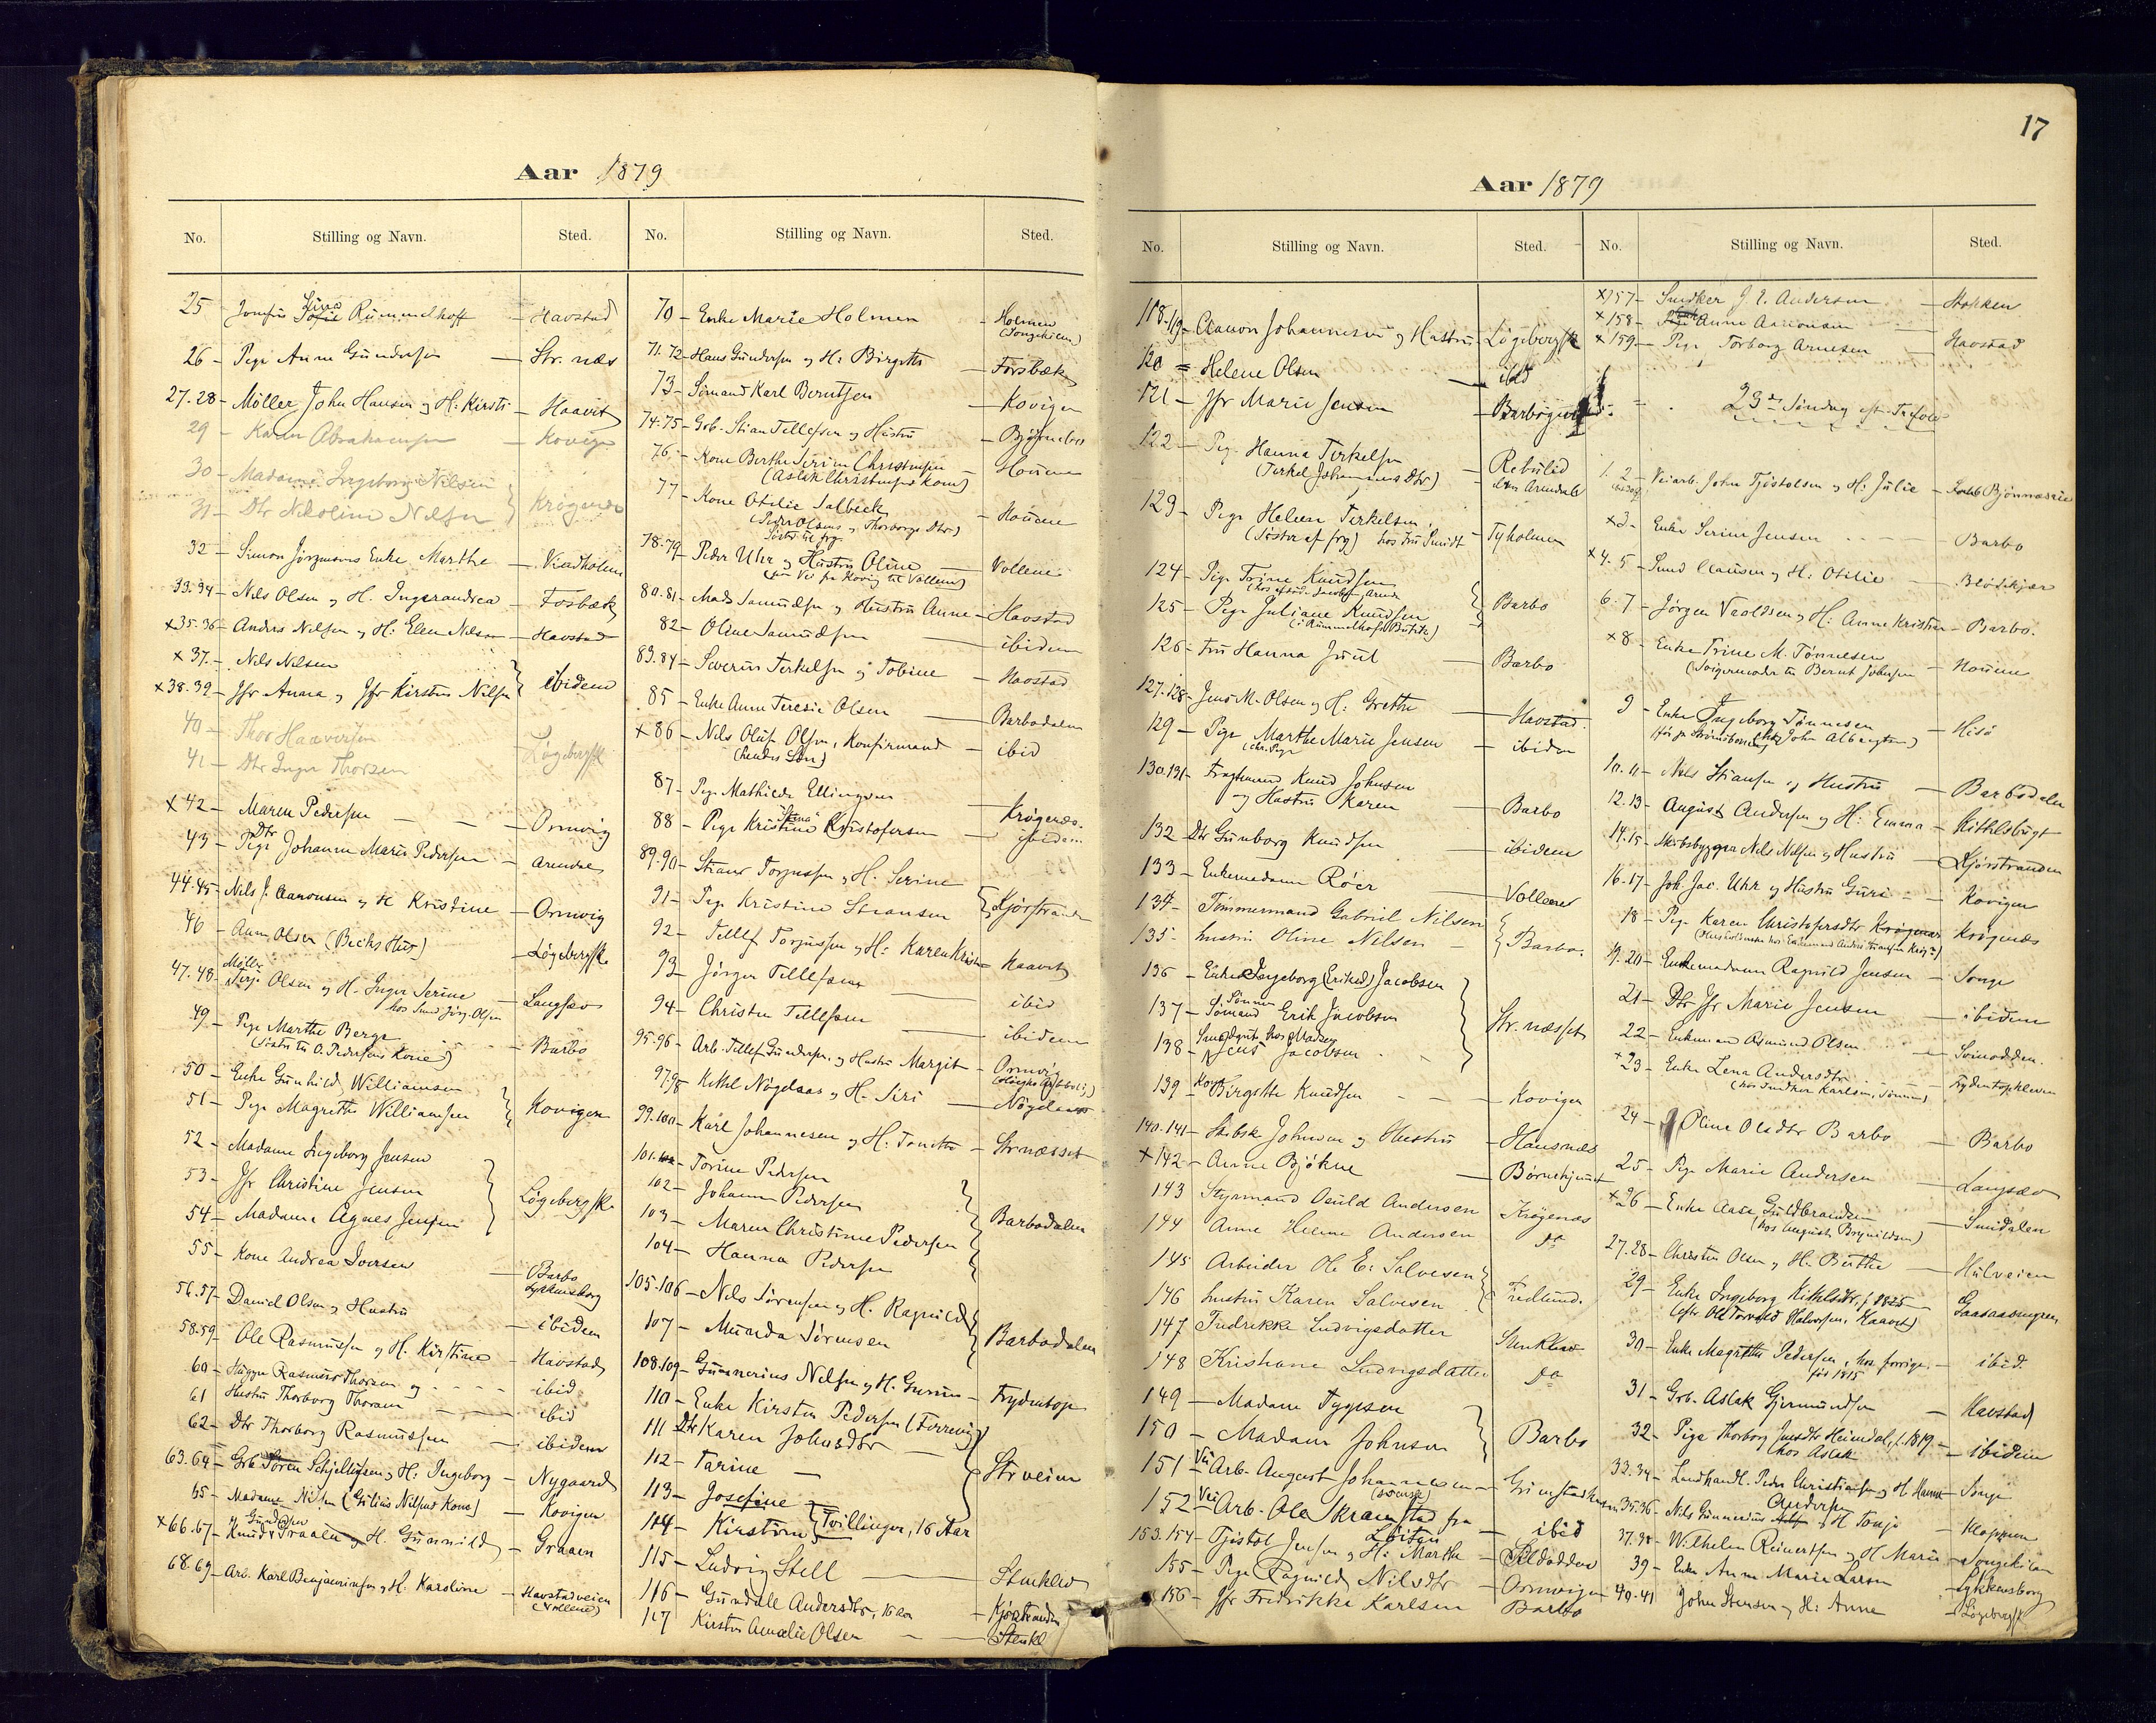 17
Aar 1879
No. Stilling og Navn. Sted.
25 - Jomfru Rummelhoff - Havstad
26 - Pige Anne Gundersen - Str. næs
27.28 - Møller John Hansen og H: Kirsti - Haavet
29 - Karen Abrahamsen - Kovige
30 - Madame Ingeborg Nilsen
31 - Dtr Nikoline Nilsen Krøgenæs
32 - Simon Jørgensens Enke Marthe - Vindholmen
33.34 - Nils Olsen og H. Ingerandrea - Fosbæk
x35.36 - Anders Nilsen og H: Ellen Nilsen - Havstad
x37. - Nils Nilsen
x38.39 - Jfr Anna og Jfr Kirstine Nilsen ibidem
40 - Thor Haaversen Løgebergsk
41 - Dtr Inger Thorsen
x42 - Maren Pedersen - Ormvig
43 - Dtr Johanne Marie Pedersen - Arendal
44.45 - Nils J. Aanonsen og H Kristine - Ormvig
46 - Anne Olsen (Bechs Hus) - Løgebergsk
47.48 - Møller Terje Olsen og H. Inger Serine - Langsæv
hos Smd Jørg. Olsen
49 - Pige Marthe Berge - Barbo
(Søster til O. Pedersens Kone)
50 - Enke Gunhild Williamsen
51 - Pige Magrethe Williamsen Kovigen
52 - Madame Ingeborg Jensen
53 - Jfr Christine Jensen Løgebergsk
54 - Madame Agnes Jensen
55 - Kone Andrea Iversen - Barbo
Lykkensborg
56.57 - Daniel Olsen og Hustru - ibidem
58.59 - Ole Rasmussen og H. Kirstine - Havstad
60 - Rasmus Thorsen og - ibid
61 Hustru Thorborg Thorsen - ibid
62 - Dtr Thorborg Rasmussen - ibidem
63.64 - Grb Søren Schjellufsen og H: Ingeborg - Nygaard
65 - Madame Nilsen (Gilius Nilsens Kone) - Kovigen
x66.67 - Knud Gundersen Graalen og H. Gunnild - Graaen
68.69 - Arb. Karl Benjaminsen og H. Karoline - Havstadveien
(Vollene)
No. Stilling og Navn. Sted.
70 - Enke Marie Holmen - Holmen
(Songekilen)
71.72 - Hans Gundersen og H: Birgitte - Forsbæk
73 - Sømand Karl Berntsen - Kovigen
74.75 - Grb. Stian Tellefsen og Hustru - Bjørnebo
76 - Kone Berthe Serine Christensen - Houene
(Aslak Christensens Kone)
77 - Kone Otilie Salbeck - Houene
(Peder Olsens og Thorborgs Dtr)
Søster til frg.
78.79 - Peder Uhr og Hustru Oline - Vollene
(ved Vei fra Kovig til Vollene)
80.81 - Mads Samuelsen og Hustru Anne - Havstad
82 - Oline Samuelsen - ibidem
83.84 - Severin Terkelsen og Tobine - Havstad
85 - Enke Anne Teresie Olsen - Barbodalen
x86 - Nils Oluf Olsen, Konfirmand - ibid
(hendes Søn)
87 - Pige Mathilde Ellingsen - Krøgenæs.
88 - Pige Kristine "Stena" Kristofersen - ibidem
89.90 - Stian Torjussen og H. Serine
91 - Pige Kristine Stiansen Kjørstranden
92 - Tellef Torjussen og H: Karen Kristine - Haavet
93 - Jørgen Tellefsen - ibid
94 - Christen Tellefsen - ibidem
95-96 - Arb. Tellef Gundersen og Hustru Margit - Ormvig
97.98 - Kittel Nøgelaas og H- Siri - Nøgelaas
99.100 - Karl Johannesen og H: Tomine - Strnæsset
101. - Torine Pedersen
102 - Johanne Pedersen
103 - Maren Christine Pedersen Barbodalen
104 - Hanna Pedersen
105.106 - Nils Sørensen og H. Ragnild
107 - Munda Sørensen Barbodalen
108.109 - Gunnerius Nilsen og H. Gurine - Frydentop
110 - Enke Kirsten Pedersen (Ferrevig)
111 Dtr Karen Johnsdtr -
112 - Tarine - Strveien
113 - Josefine
114 - Kirstine Tvillinger, 16 Aar
115 - Ludvig Stell - Stenklev
116 - Gundelle Andersdtr, 16 Aar - Kjørstranden
117 Kirsten Amalie Olsen - Stenkl
Aar 1879
No. Stilling og Navn. Sted.
118.119 - Aanon Johannesen og Hustru Løgebergsk
120 = Helene Olsen - ibid
121 - Jfr Marie Jensen - Barbogaard
122 - Pig. Hanna Terkelsen - Rebulid
(Terkel Johannesens Dtr) - Arendal
123 - Pige Helene Terkelsen, - Tyholmen
(Søster af frg) hos Fru Smidt
124 - Pige Trine Knudsen
125 - Pige Juliane Knudsen Barbo
(i Rummelhofs Butik)
126 - Fru Hanna Juul - Barbo
127.128 - Jens M. Olsen og H: Grethe - Havstad
129 - Pige Marthe Marie Jensen - ibidem
130.131 - Fragtmand Knud Johnsen
og Hustru Karen - Barbo
132 - Dtr Gunborg Knudsen - ibidem
133 - Enkemadam Röer - Vollene
134 - Tømmermand Gabriel Nilsen
135 - hustru Oline Nilsen - Barbo.
136 - Enke Ingeborg (Eriksd) Jacobsen
137 - Sønnen Sømand Erik Jacobsen Str. næsset
138 - Jens Jacobsen
139 - Kone Birgitte Knudsen - Kovigen
140.141 - Skibsk Johnsen og Hustru - Hansnæs
x142 - Anne Bjökne - Børnehjemmet
143 Styrmand Osuld Andersen Krøgenæs
144 Anne Helene Andersen Do
145 Arbeider Ole E: Salvesen
146 hustru Karen Salvesen Fredlund.
147 Fredrikke Ludvigsdatter Stenklev
148 Kristiane Ludvigsdatter Do
149 - Madam Tygesen
150 - Madam Johnsen Barbo
151 Vei Arb. August Johannesen - Grimstadveien
(svensk)
152 - Vei Arb. Ole Kramstad fra - ibid
Løiten
153.154 - Tjöstöl Jensen og H: Marthe - Sildodden
155 - Pige Ragnild Nilsdtr - Ormvigen
156 - Jfr Fredrikke Karlsen Barbo
No. Stilling og Navn. Sted.
x157 - Snedker J. E. Andersen - Stokken
x158 - Anne Aanonsen
x159 - Pige Torborg Arnesen - Havstad
23de Søndag eft. Trefold.
1. 2 - Veiarb. John Tjöstolsen og H: Julie - Bjønnæsveien
x3 - Enke Serine Jensen - Barbo
x4. 5 - Smd Clausen og H: Otilie - Blødekjær
6. 7 - Jörgen Veoldsen og H: Anne Kristine - Barbo.
x8 - Enke Trine M. Tønnesen - Houene
(Svigermoder til Bernt Johnsen
9 - Enke Ingeborg Tønnesen - Hisö
10. 11 - Nils Stiansen og Hustru - Barbodalen
12.13 - August Andersen og H: Emma - Kittelsbugt
14.15 - Skibsbygger Nils Nilsen og Hustru - Kjörstranden
16.17 - Joh. Jac. Uhr og Hustru Guri - Kovigen
18 - Pige Karen Christofersdtr Krögenæs
19.20 - Enkemadam Ragnild Jensen - Songe
21 - Dtr Jfr Marie Jensen - ibidem
22 - Enkemand Osmund Olsen - Svinodden.
x23 - Enke Lena Andersdtr - Frydentopkleven
24 - Oline Olsdtr Barbo - Barbo
25 - Pige Marie Andersen - Langsæv
x26 - Enke Aase Guldbrandsen - Smidalen
(hos August Brynildsen)
27.28 - Christen Olsen og H. Birthe - Hulveien
29 - Enke Ingeborg Kittelsdtr, f. 1825
(efter Ole Torvald Halvorsen, Haavet)
30 - Enke Magrethe Pedersen, hos forrige. - ibid.
før 1815
31 - Grb. Aslak Gjermundsen - Havstad
32 - Pige Thorborg Jensdtr Heimdal, f. 1819 - ibidem
hos Aslak
33.34 - Landhandl. Peder Christiansen og H Hanne - Songe
35.36 - Nils Gunnerius Andersen og H Tonje - Kloppene
37.38 - Wilhelm Reinertsen og H Marie - Songekilen
39 - Enke Anne Marie Larsen - Lykkensborg
40.41 John Stensen og H: Anne - Løgebergsk